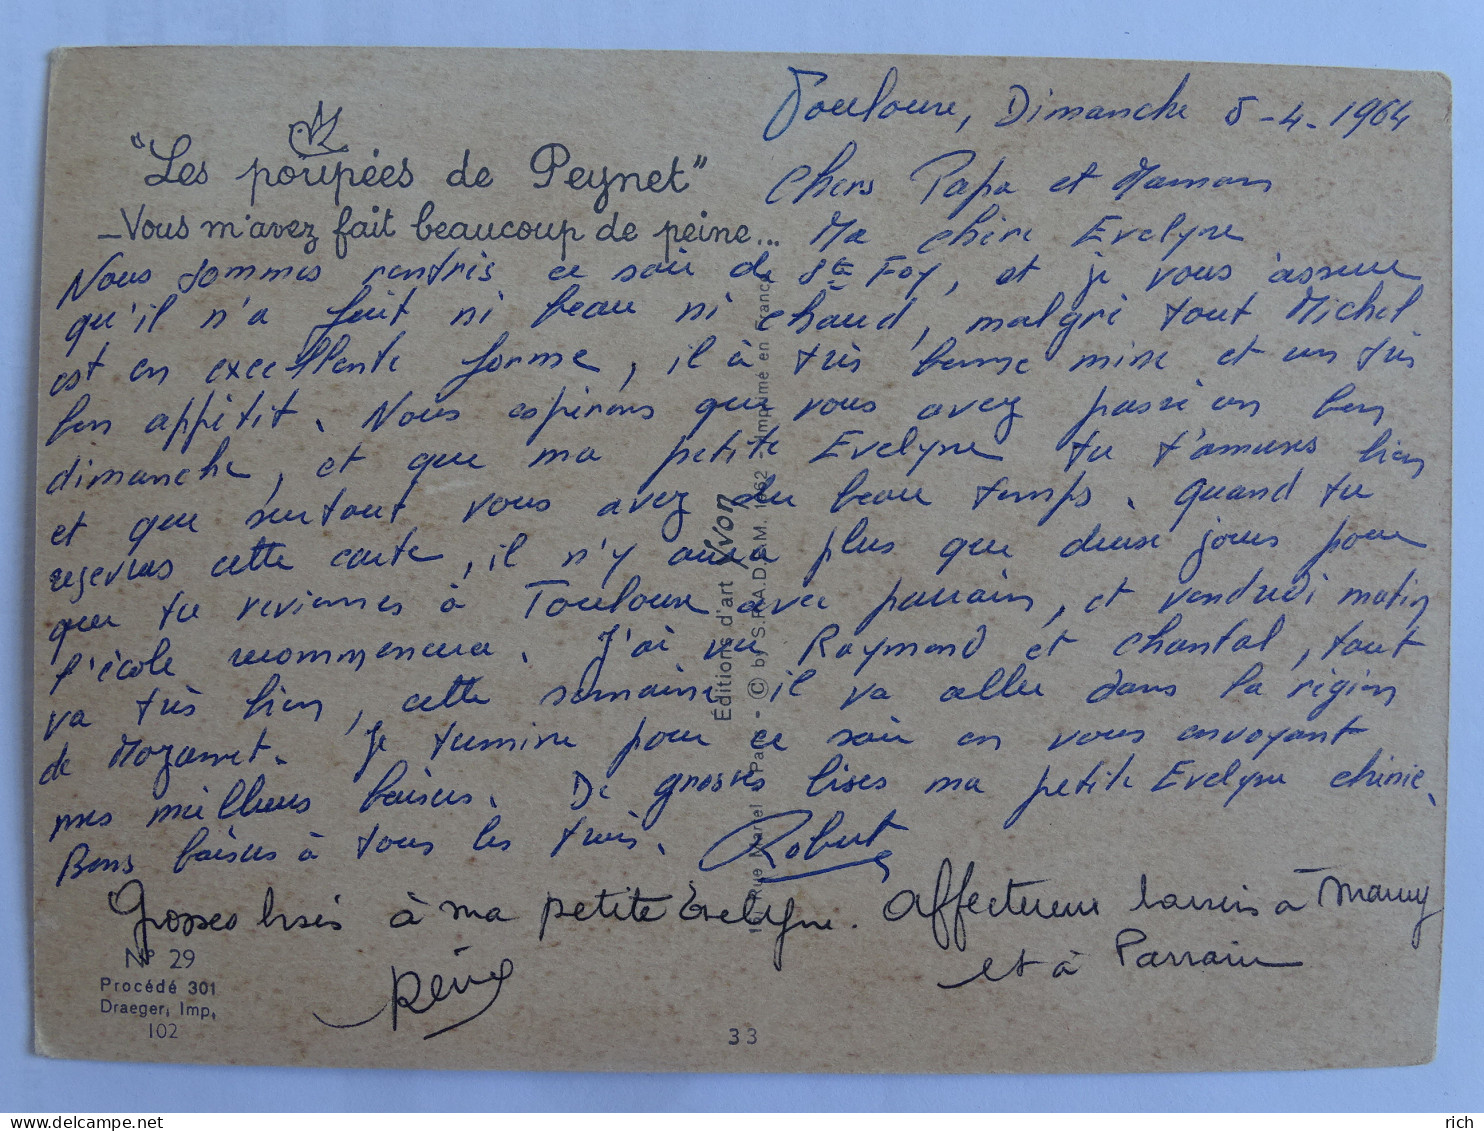 Toulouse, Dimanche 5-4-1964
"Les poupées de Peynet"
—Vous m'avez fait beaucoup de peine...
Chers Papa et Maman
Ma chère Evelyne
Nous sommes rentrés ce soir de Ste Foy, et je vous assure
qu'il n'a fait ni beau ni chaud, malgré tout Michel
est en excellente forme, il à très bonne mine et un très
bon appétit. Nous espérons que vous avez passé un bon
dimanche, et que ma petite Evelyne tu t'amuses bien
et que surtout vous avez du beau temps. Quand tu
recevras cette carte, il n'y aura plus que deux jours pour
que tu reviennes à Toulouse avec parrain, et vendredi matin
l'école recommencera. J'ai vu Raymond et Chantal, tout
va très bien, cette semaine il va aller dans la région
de Mazamet. Je termine pour ce soir en vous envoyant
mes meilleurs baisers. De grosses bises ma petite Evelyne chérie.
Bons baisers à tous les trois. Robert
Grosses bises à ma petite Evelyne. Affectueux baisers à Mamy
et à Parrain
N° 29
Procédé 301
Draeger, Imp,
102
33
Éditions d'art Yvon
15, Rue Martel Paris - © by S.P.A.D.E.M. 1962 - Imprimé en France
delcampe.net
rich